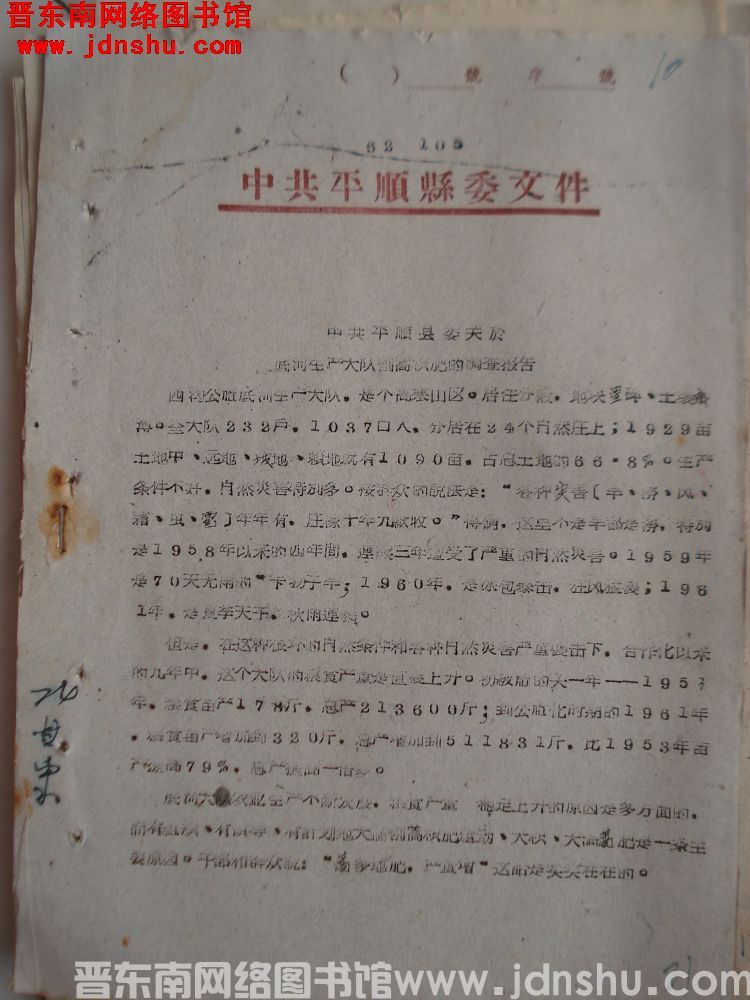 晋东南网络图书馆
www.jdnshu.com
( ) 號 字 號 10
62 105
中共平順縣委文件
中共平順县委关於
底河生产大队割蒿积肥的調查报告
西沟公社底河生产大队，是个高寒山区。居住分散，地块零碎、土壤瘠
薄。全大队232户，1037口人，分居在24个自然庄上；1929亩
土地中、远地、坡地、賴地就有1090亩，占总土地的66·8%。生产
条件不好，自然災害特别多。按群众的說法是："各种災害〔旱、涝、风、
霜、虫、雹〕年年有，庄稼十年九歉收。"的确，这里不是旱都是涝，特别
是1958年以来的四年間，連續三年遭受了严重的自然災害。1959年
是70天无雨的"卡脖子旱；1960年，是冰雹袭击，狂风猛袭；196
1年，是夏季天干，秋雨連綿。
但是，在这种很坏的自然条件和各种自然災害严重袭击下，合作化以来
的九年中，这个大队的粮食产量是直綫上升。初級社的头一年——195
年，粮食亩产178斤，总产213600斤；到公社化时期的1961年
，粮食亩产增加到320斤，总产增加到511831斤，比1953年亩
产提高79%，总产提高一倍多。
底河大队农业生产不断发展，粮食产量 穩定上升的原因是多方面的，
而有組织、有領导、有計划地大搞割蒿积肥运动、大积、大漚蒿肥是一条主
要原因。干部和群众說："蒿多地肥，产量增"这話是实实在在的。
晋东南网络图书馆www.jdnshu.com